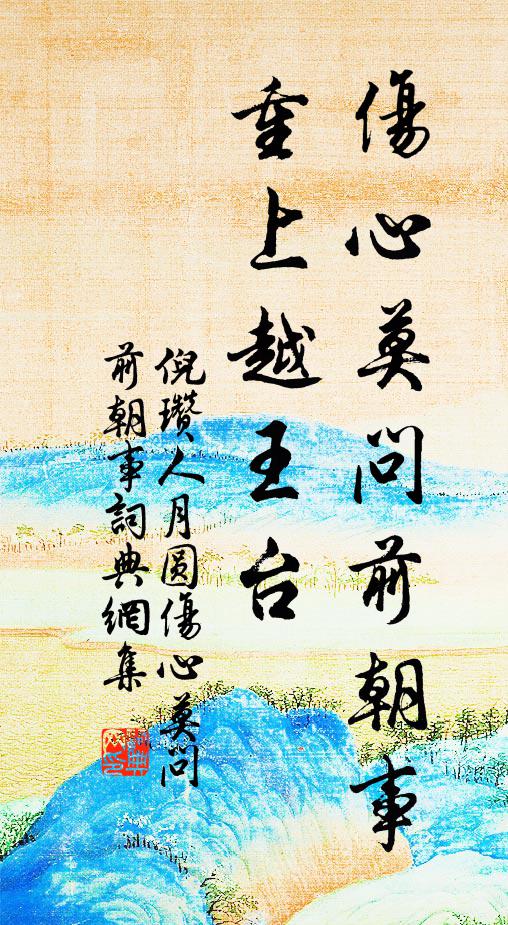 傷心莫問前朝事
重上越王台
倪瓚人月圓傷心莫問
前朝事詞典網集